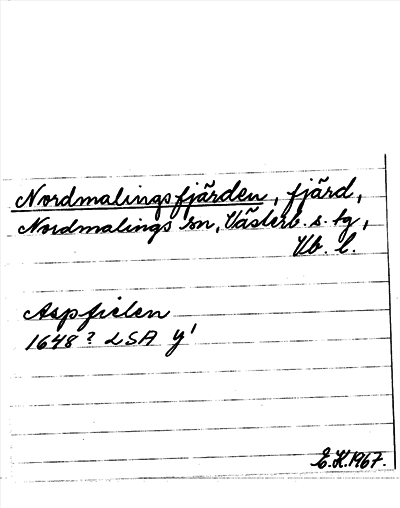 Nordmalingsfjärden, fjärd,
Nordmalings sn, Västerb. s. tg,
Vb. l.
Aspfielen
1648? LSA y'
E.H.1967.